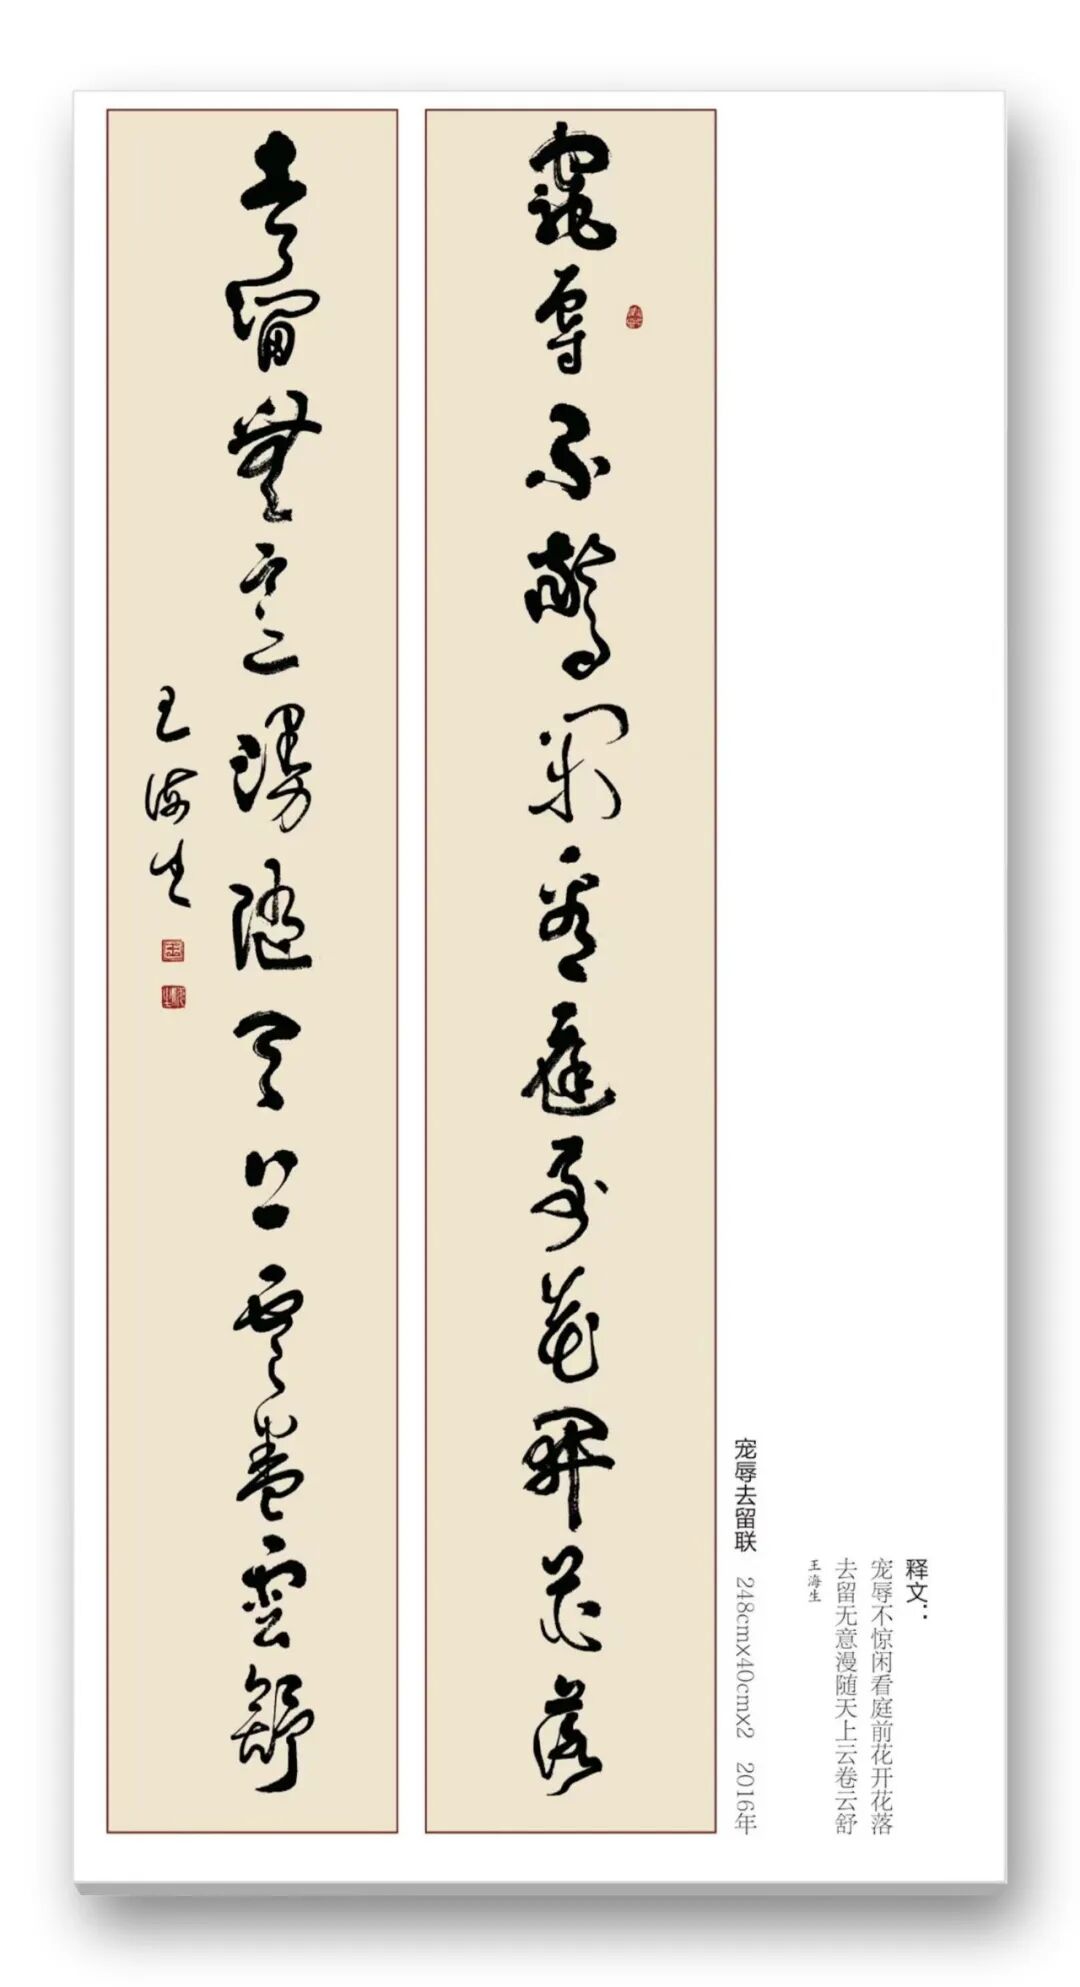 寵辱不驚閑看庭前花開花落
去留無意漫隨天上雲卷雲舒
王海生
宠辱去留联 248cmx40cmx2 2016年
释文：
宠辱不惊闲看庭前花开花落
去留无意漫随天上云卷云舒
王海生